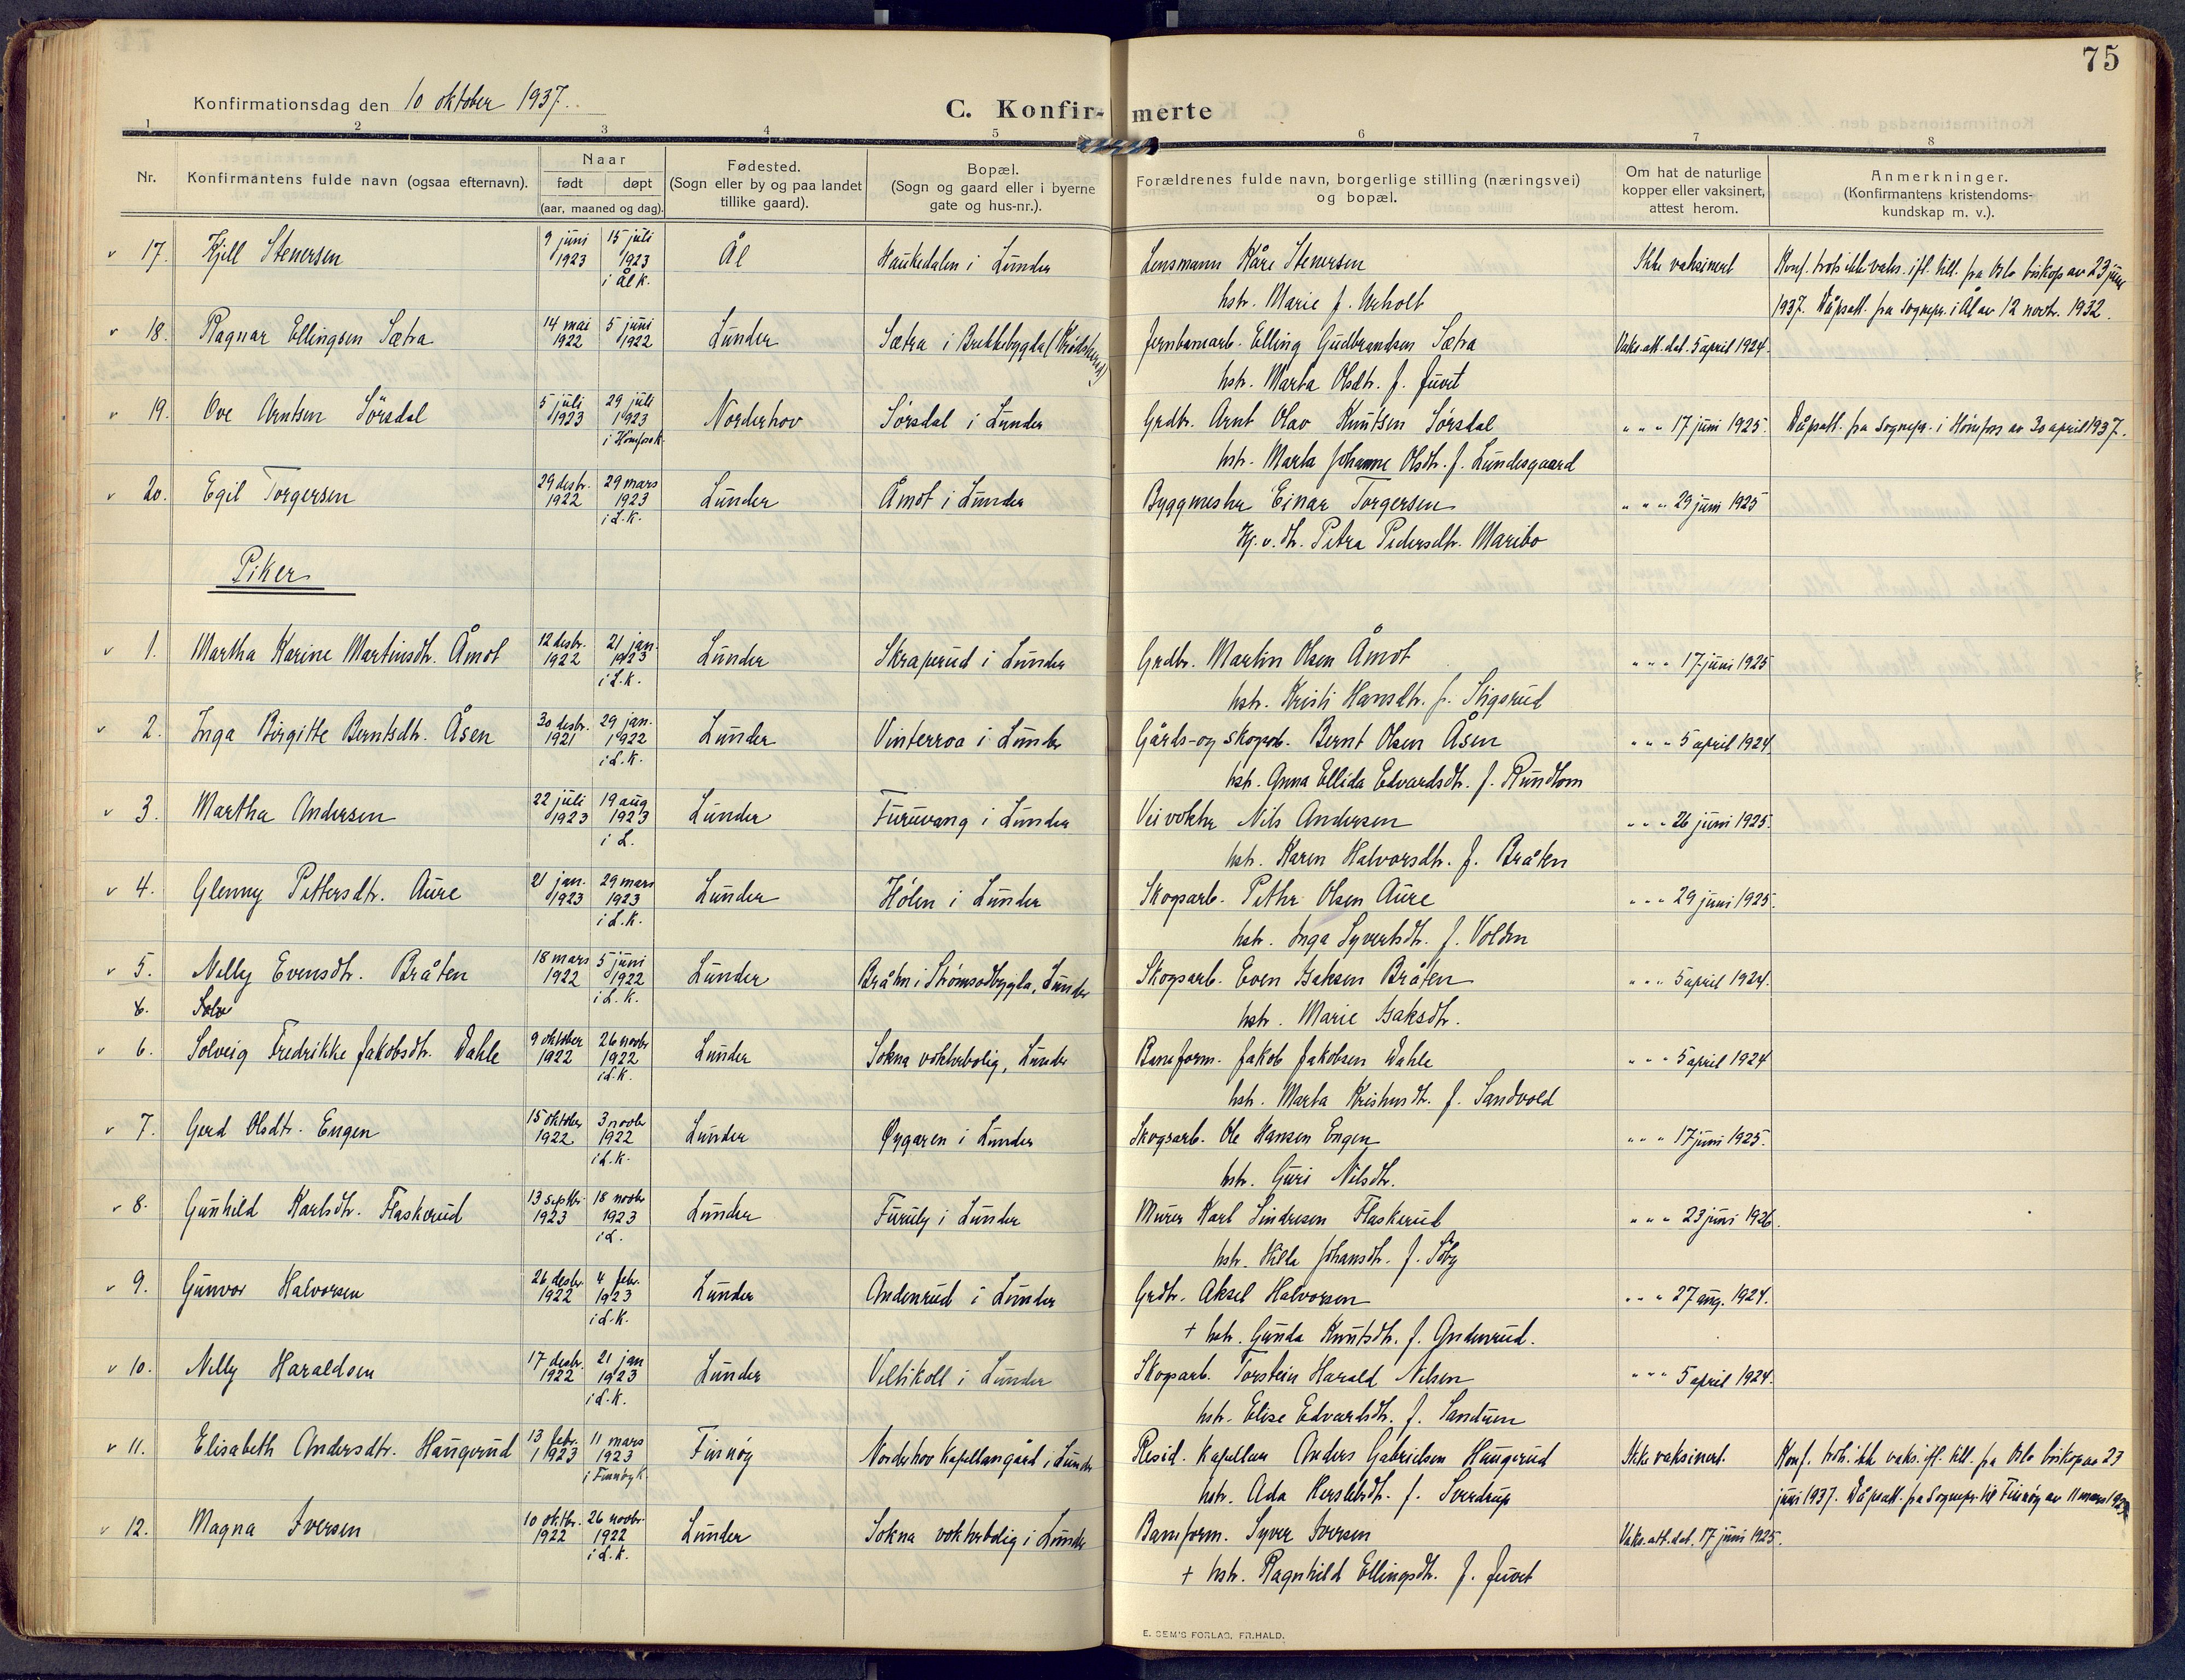 75
Konfirmationsdag den 10 oktober 1937.
C. Konfir- merte
1 2 3 4 5 6 7 8
Nr.
Konfirmantens fulde navn (ogsaa efternavn).
Naar
født døpt
(aar, maaned og dag).
Fødested.
(Sogn eller by og paa landet
tillike gaard).
Bopæl.
(Sogn og gaard eller i byerne
gate og hus-nr.).
Forældrenes fulde navn, borgerlige stilling (næringsvei)
og bopæl.
Om hat de naturlige
kopper eller vaksinert,
attest herom.
Anmerkninger.
(Konfirmantens kristendoms-
kundskap m. v.).
v 17. Kjell Stenersen 9 juni 1923 15 juli 1923 i Ål k. Ål Haukedalen i Lunder Lensmann Kåre Stenersen Ikke vaksinert Konf. trots ikke vaks. ifl. till. fra Oslo biskop av 23 juni
hstr. Marie f. 1937. Dåpsatt. fra sognepr. i Ål av 12 novbr. 1932.
v 18. Ragnar Ellingsen Sætra 14 mai 1922 5 juni 1922 Lunder Sætra i Brekkebygda (Krødsherad) Jernbanearb. Elling Gudbrandsen Sætra Vaks. att. dat. 5 april 1924.
hstr. Marta Olsdtr. f. Juvet
v 19. Ove Arntsen Sörsdal 5 juli 1923 29 juli 1923 i Hönefoss k. Norderhov Sörsdal i Lunder Grdbr. Arnt Olav Knutsen Sörsdal " " " 17 juni 1925. Dåpsatt. fra sognepr. i Hönefoss av 30 april 1937.
hstr. Marta Johanne Olsdtr. f. Lundesgaard
v 20. Egil Torgersen 29 desbr. 1922 29 mars 1923 i L. K. Lunder Åmot i Lunder Byggmester Einar Torgersen " " " 29 juni 1925
Hj. v. dtr. Petra Pedersdtr. Maribo
Piker
v 1. Martha Karine Martinsdtr. Åmot 12 desbr. 1922 21 jan. 1923 i L. K. Lunder Skraperud i Lunder Grdbr. Martin Olsen Åmot " " " 17 juni 1925
hstr. Kristi Hansdtr. f. Stigsrud
v 2. Inga Birgitte Berntsdtr. Åsen 30 desbr. 1921 29 jan. 1922 i L. K. Lunder Vinterroa i Lunder Gårds- og skogarb. Bernt Olsen Åsen " " " 5 april 1924
hstr. Anna Ellida Edvardsdtr. f. Rundtom
v 3. Martha Andersen 22 juli 1923 19 aug 1923 i L. Lunder Furuvang i Lunder Veivokter Nils Andersen " " " 26 juni 1925.
hstr. Karen Halvorsdtr. f. Bråten
v 4. Glenny Pettersdtr. Aure 21 jan. 1923 29 mars 1923 i L. K. Lunder Hölen i Lunder Skogsarb. Petter Olsen Aure " " " 29 juni 1925.
hstr. Inga Syvertsdtr. f. Volden
v 5. Nelly Evensdtr. Bråten 18 mars 1922 5 juni 1922 i L. K. Lunder Bråten i Strømsodbygda, Lunder Skogsarb. Even Isaksen Bråten " " " 5 april 1924.
6. Solv hstr. Marie Isaksdtr.
v 6. Solveig Fredrikke Jakobsdtr. Dahle 9 oktober 1922 26 novbr 1922 i L. K. Lunder Sokna vokterbolig, Lunder Baneform. Jakob Jakobsen Dahle " " " 5 april 1924
hstr. Marta f. Sandvold
v 7. Gerd Olsdtr. Engen 15 oktober 1922 3 novbr 1922 i L. K. Lunder Øygaren i Lunder Skogsarb. Ole Hansen Engen " " " 17 juni 1925.
hstr. Guri Nilsdtr.
v 8. Gunhild Karlsdtr. Flaskerud 13 septbr. 1923 18 novbr 1923 i L. Lunder Furuly i Lunder Murer Karl Sindresen Flaskerud " " " 23 juni 1926.
hstr. Hilda Johansdtr. f. Söby
v 9. Gunvor Halvorsen 26 desbr. 1922 4 febr. 1923 i L. K. Lunder Andenrud i Lunder Grdbr. Aksel Halvorsen " " " 27 aug. 1924.
+ hstr. Gunda Knutsdtr. f. Andenrud.
v 10. Nelly Haraldsen 17 desbr. 1922 21 jan 1923 i L. K. Lunder Veltikoll i Lunder Skogsarb. Torstein Harald Nilsen " " " 5 april 1924.
hstr. Elise Edvardsdtr. f. Sandum
v 11. Elisabeth Andersdtr. Haugerud 13 febr. 1923 11 mars 1923 i Finnøy k Finnøy Norderhov kapellangård i Lunder Resid. Kapellan Anders Gabrielsen Haugerud Ikke vaksinert. Konf. trots ikke vaks. ifl. till. fra Oslo biskop av 23
hstr. Ada Herslebsdtr. f. Sverdrup juni 1937. Dåpsatt. fra sognepr. til Finnøy av 11 mars
v 12. Magna Iversen 10 oktbr. 1922 26 novbr. 1922 i L. K. Lunder Sokna vokterbolig i Lunder Baneform. Syver Iversen Vaks. att. dat. 17 juni 1925.
+ hstr. Ragnhild Ellingsdtr. f. Juvet
E. SEM'S FORLAG, FR.HALD.